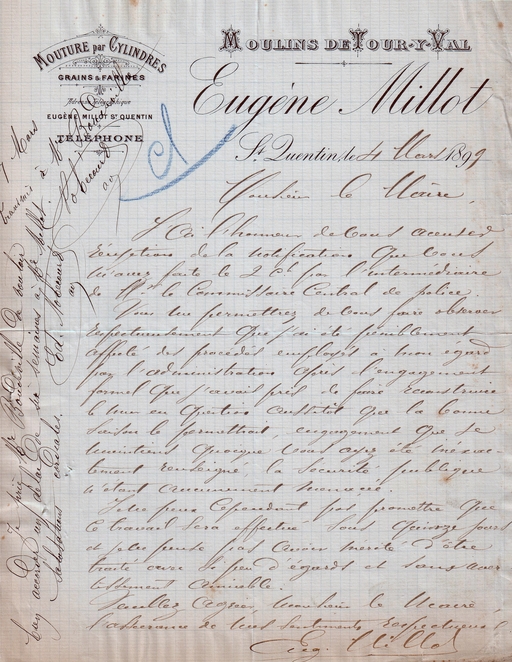 MOUTURE par CYLINDRES
GRAINS & FARINES
Adresse Télégraphique
EUGÈNE MILLOT ST QUENTIN
TÉLÉPHONE
MOULINS DE TOUR-Y-VAL
Eugène Millot
St. Quentin, le 4 Mars 1899
Monsieur le Maire,
J'ai l'honneur de vous accuser
réception de la notification que vous
m'avez faite le 2 Ct par l'intermédiaire
de Mr le Commissaire Central de police.
Vous me permettrez de vous faire observer
respectueusement que j'ai été péniblement
affecté des procédés employés à mon égard
par l'administration après l'engagement
formel que j'avais pris de faire reconstruire
le mur en question aussitôt que la bonne
saison le permettrait, engagement que je
maintiens quoique vous ayez été inexac-
tement renseigné, la sécurité publique
n'étant aucunement menacée.
Je ne puis cependant pas promettre que
le travail sera effectué sous quinze jours
et je ne pense pas avoir mérité d'être
traité avec si peu d'égards et sans aver-
tissement amiable.
Veuillez agréer, Monsieur le Maire,
l'assurance de mes sentiments respectueux
Eug. Millot
7 Mars
Transmis à Mr
Je prie Mr de vouloir
bien accorder un délai de six semaines à Mr Millot.
Salutations cordiales.